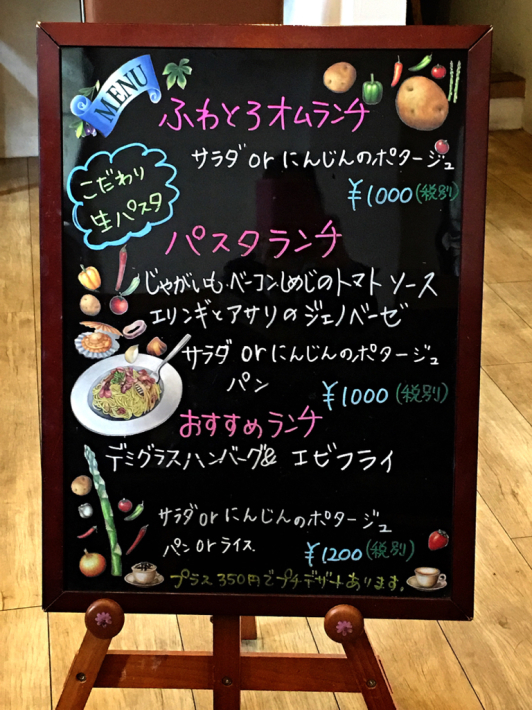 MENU
ふわとろオムランチ
サラダorにんじんのポタージュ
¥1000(税別)
こだわり
生パスタ
パスタランチ
じゃがいも・ベーコンしめじのトマトソース
エリンギとアサリのジェノベーゼ
サラダorにんじんのポタージュ
パン
¥1000(税別)
おすすめランチ
デミグラスハンバーグ& エビフライ
サラダorにんじんのポタージュ
パンorライス
¥1200(税別)
プラス350円でプチデザートあります。